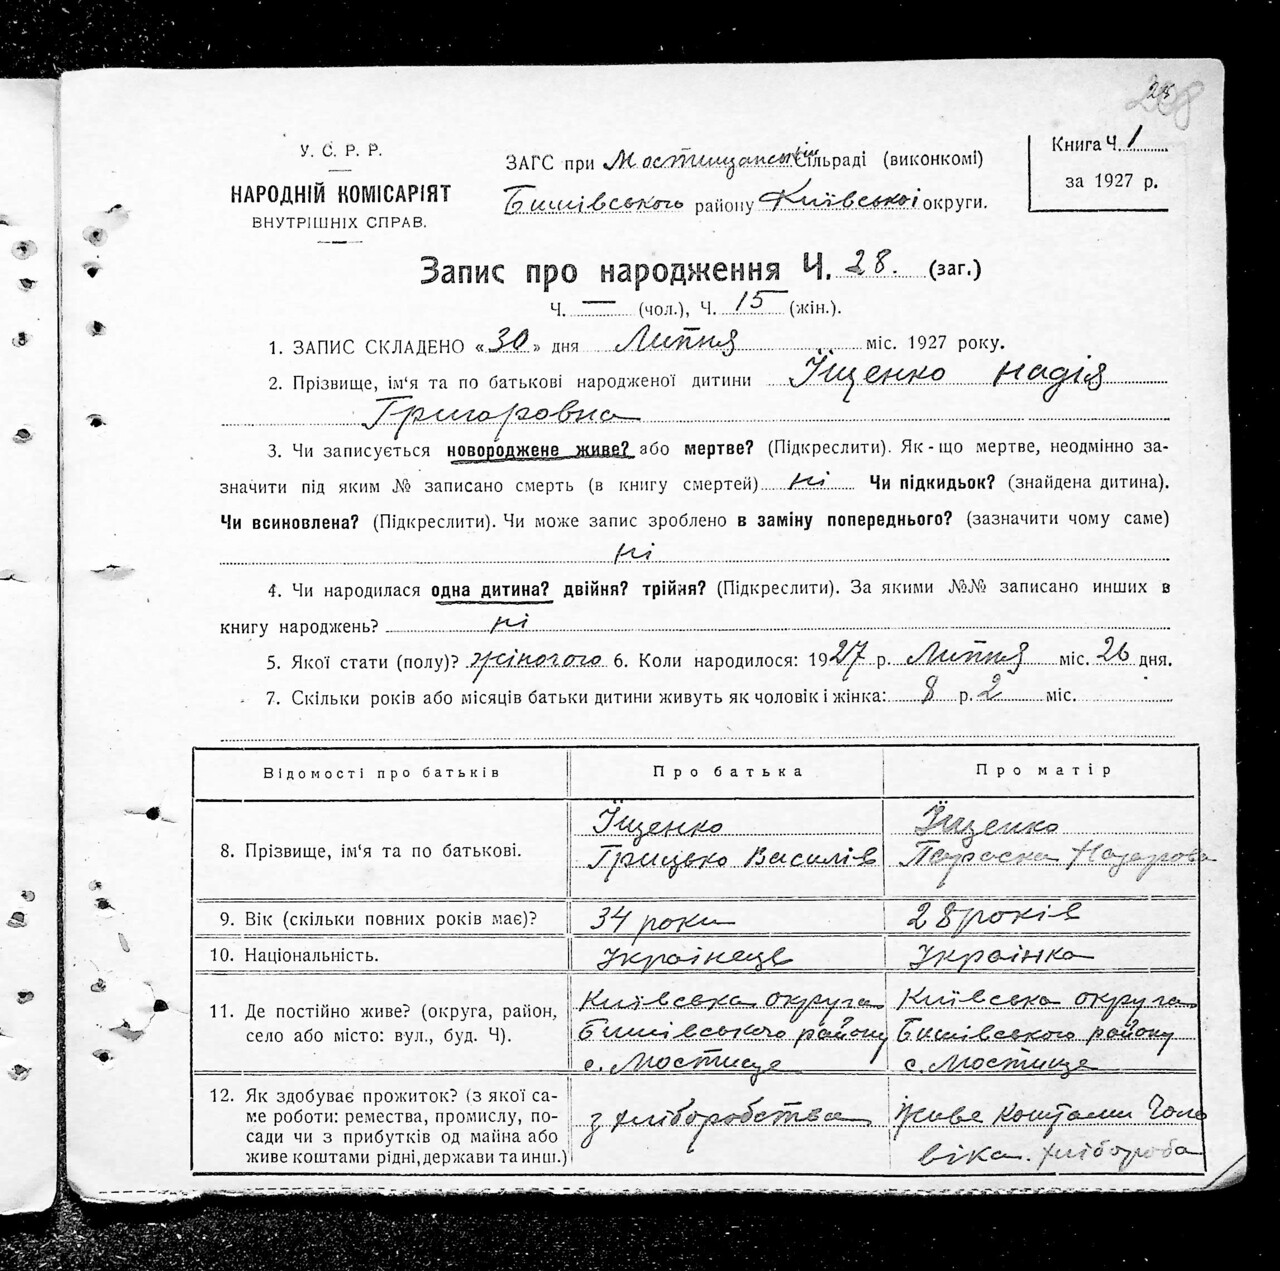 28
У. С. Р. Р.
НАРОДНІЙ КОМІСАРІЯТ
ВНУТРІШНІХ СПРАВ.
ЗАГС при Мостищанській Сільраді (виконкомі)
Бишівського району Київської округи.
Книга Ч. 1
за 1927 р.
Запис про народження Ч. 28. (заг.)
Ч. — (чол.), Ч. 15 (жін.).
1. ЗАПИС СКЛАДЕНО «30» дня Липня міс. 1927 року.
2. Прізвище, ім'я та по батькові народженої дитини Їщенко Надія
Григоровна
3. Чи записується новороджене живе? або мертве? (Підкреслити). Як-що мертве, неодмінно за-
значити під яким № записано смерть (в книгу смертей) ні Чи підкидьок? (знайдена дитина).
Чи всиновлена? (Підкреслити). Чи може запис зроблено в заміну попереднього? (зазначити чому саме)
ні
4. Чи народилася одна дитина? двійня? трійня? (Підкреслити). За якими №№ записано инших в
книгу народжень? ні
5. Якої стати (полу)? жіночого 6. Коли народилося: 1927 р. Липня міс. 26 дня.
7. Скільки років або місяців батьки дитини живуть як чоловік і жінка: 8 р. 2 міс.
Відомості про батьків Про батька Про матір
8. Прізвище, ім'я та по батькові.
Їщенко
Грицько Василів
Їщенко
Параска Назарова
9. Вік (скільки повних років має)? 34 роки 28 років
10. Національність. Українець Українка
11. Де постійно живе? (округа, район,
село або місто: вул., буд. Ч).
Київська округа
Бишівського району
с. Мостище
Київська округа
Бишівського району
с. Мостище
12. Як здобуває прожиток? (з якої са-
ме роботи: ремества, промислу, по-
сади чи з прибутків од майна або
живе коштами рідні, держави та инш.)
з хліборобства
живе коштами Чоло
віка. хлібороба